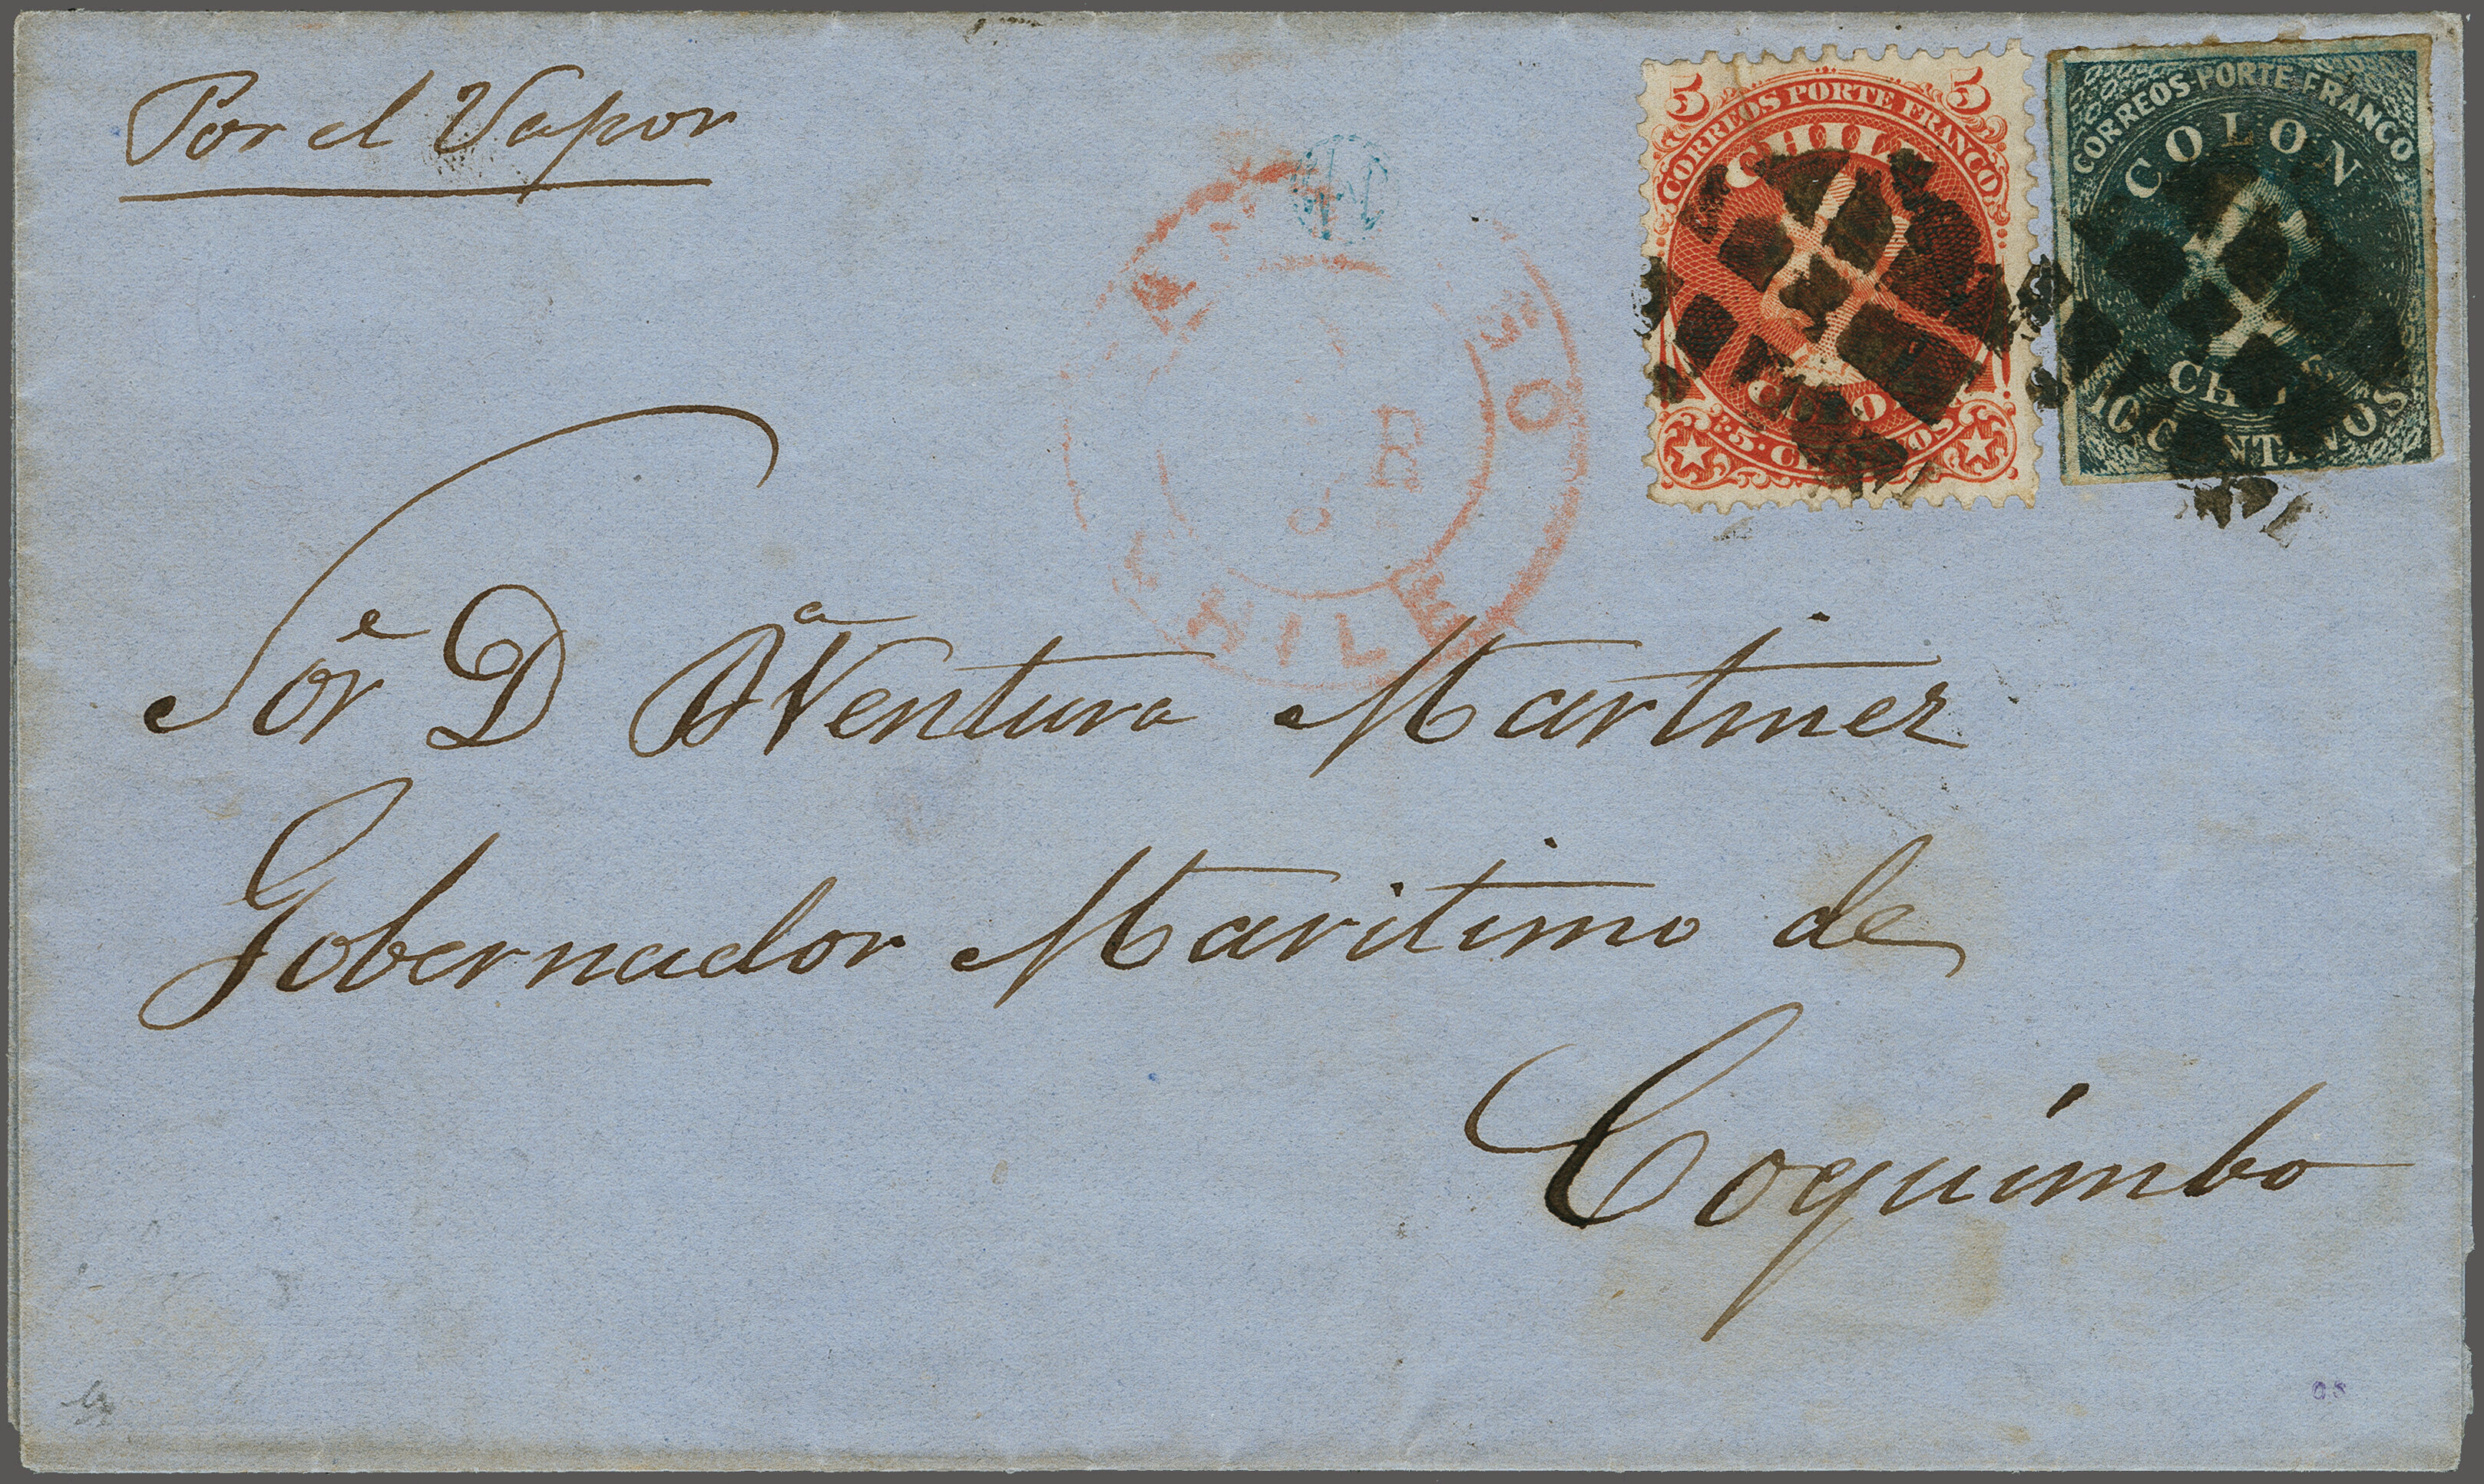 Por el Vapor
5 5
CORREOS PORTE FRANCO
CHILE
COLON
5 CENTAVOS
CORREOS PORTE FRANCO
COLON
CHILE
10 CENTAVOS
CHILE
Sor^e D B^aVentura Martinez
Gobernador Maritimo de
Coquimbo